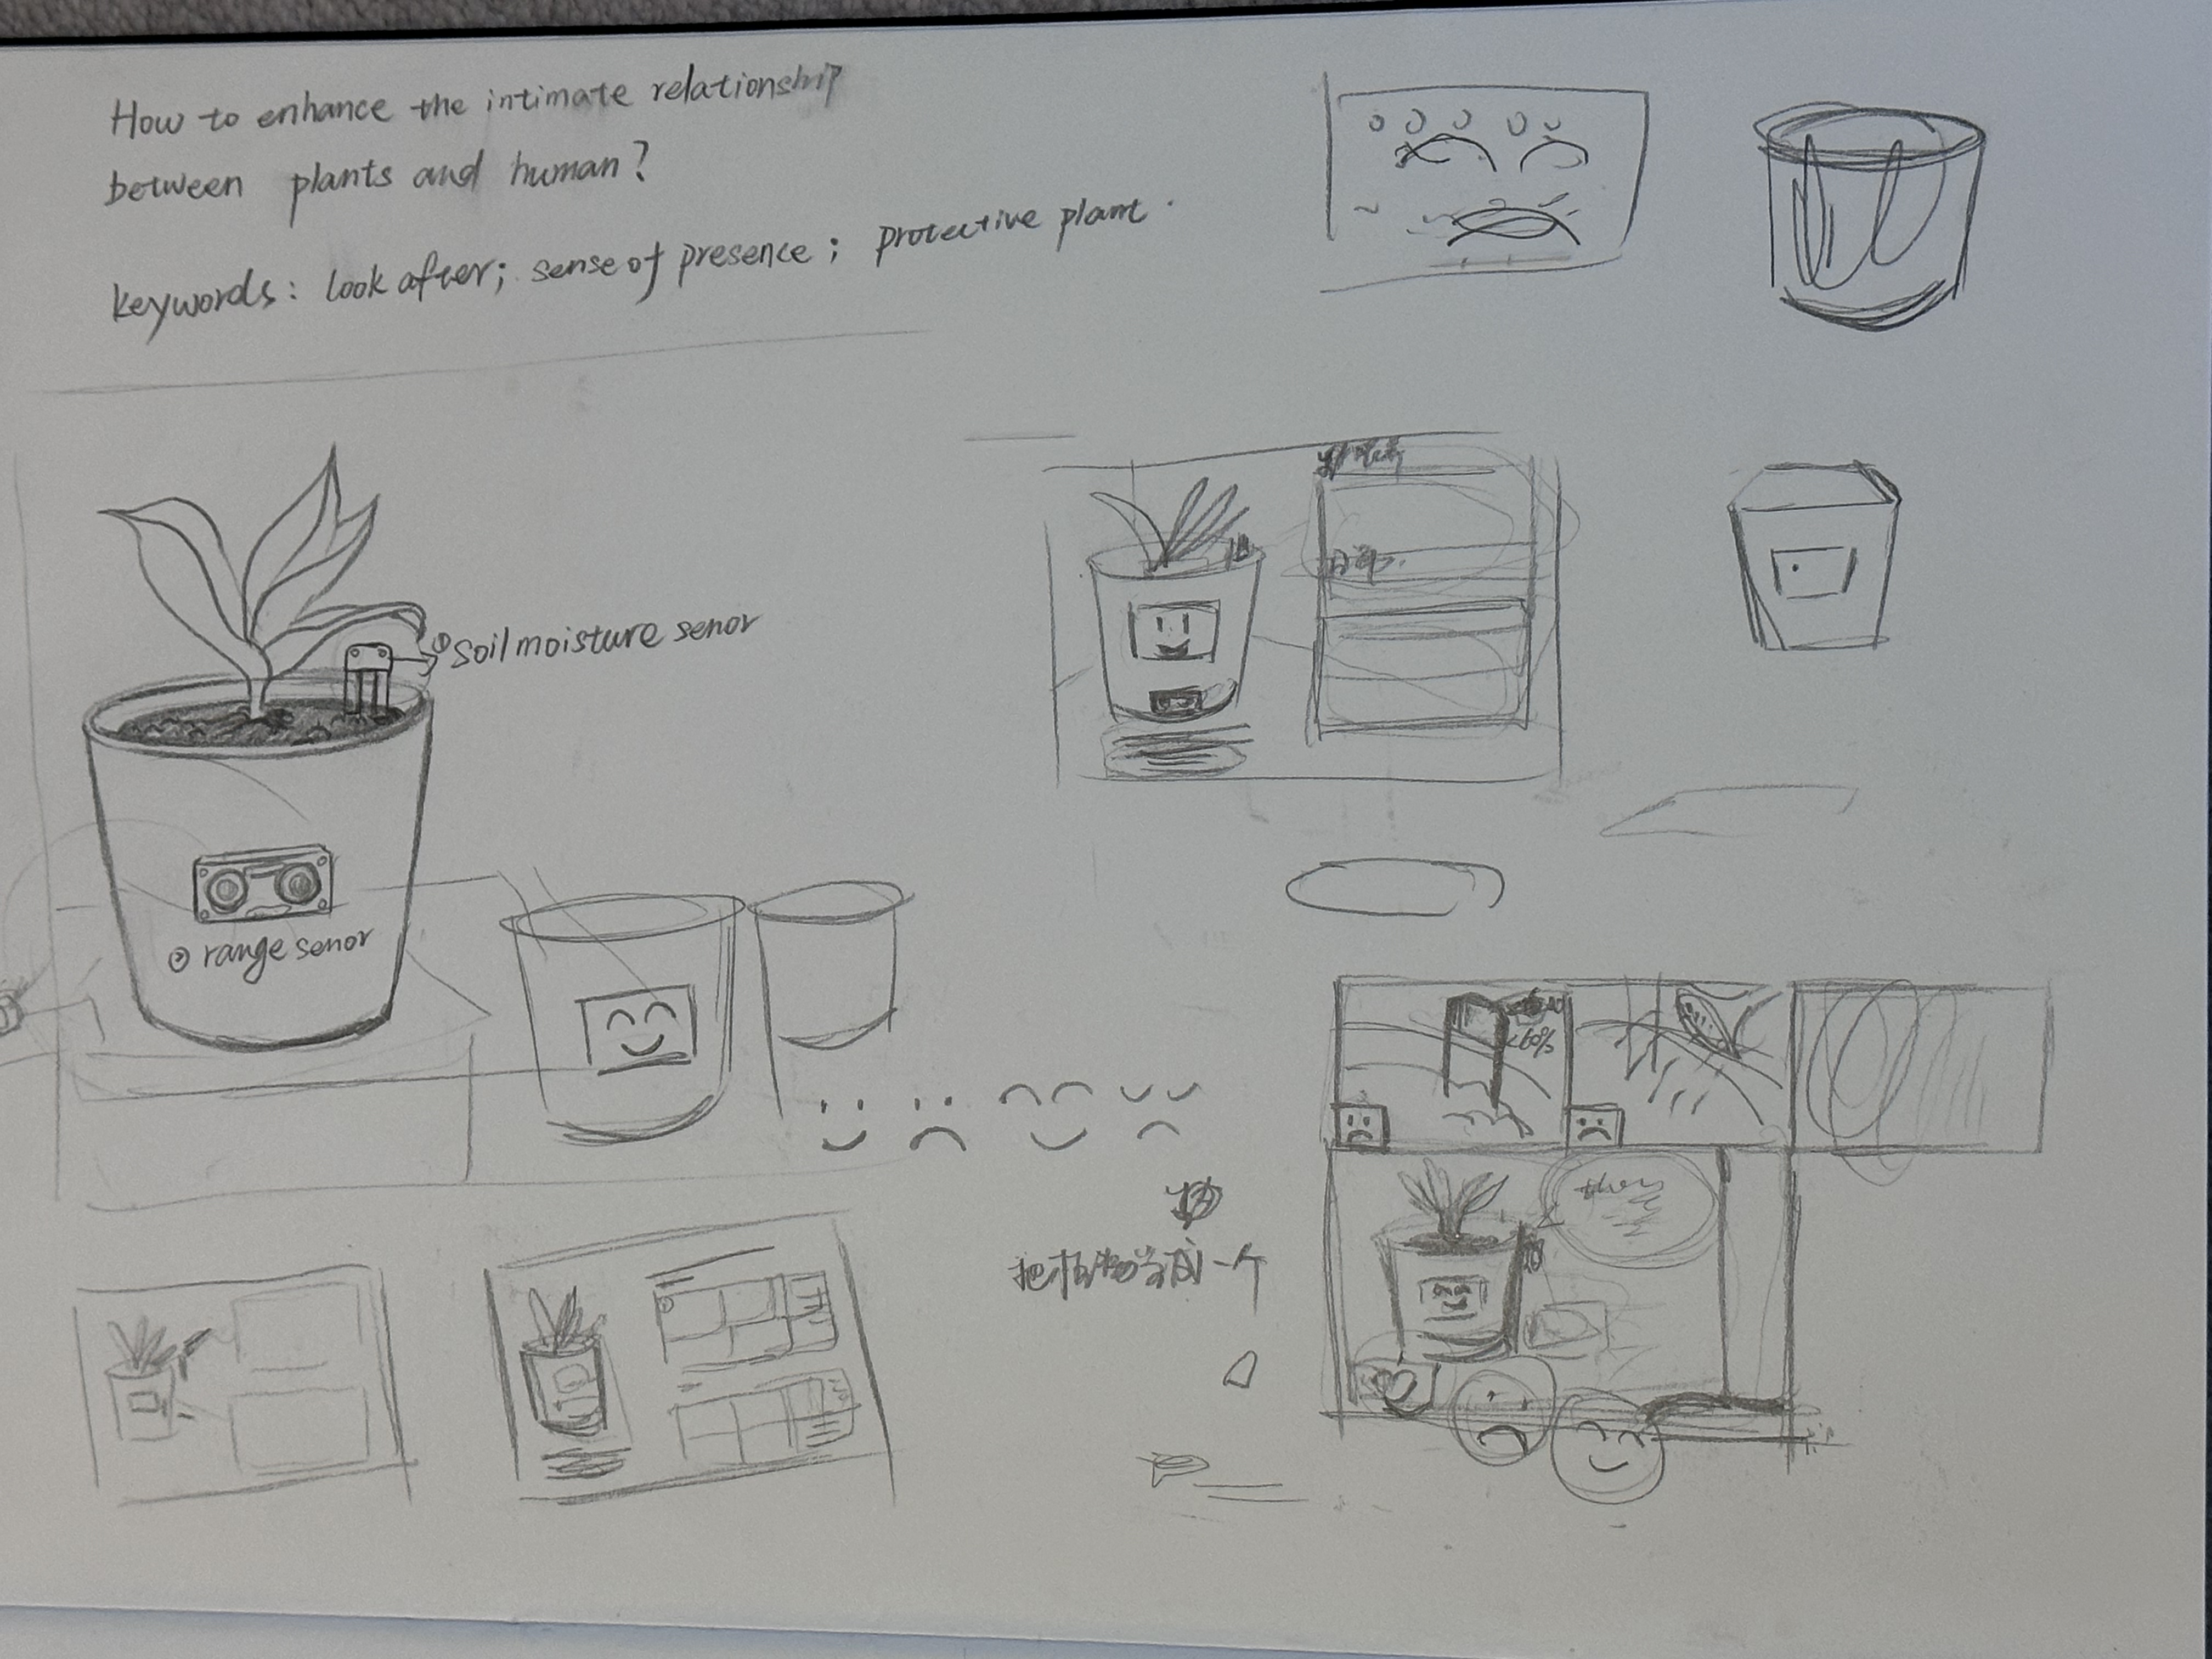 How to enhance the intimate relationship
between plants and human?
keywords: look after; sense of presence; proactive plant.
① Soil moisture senor
② range senor